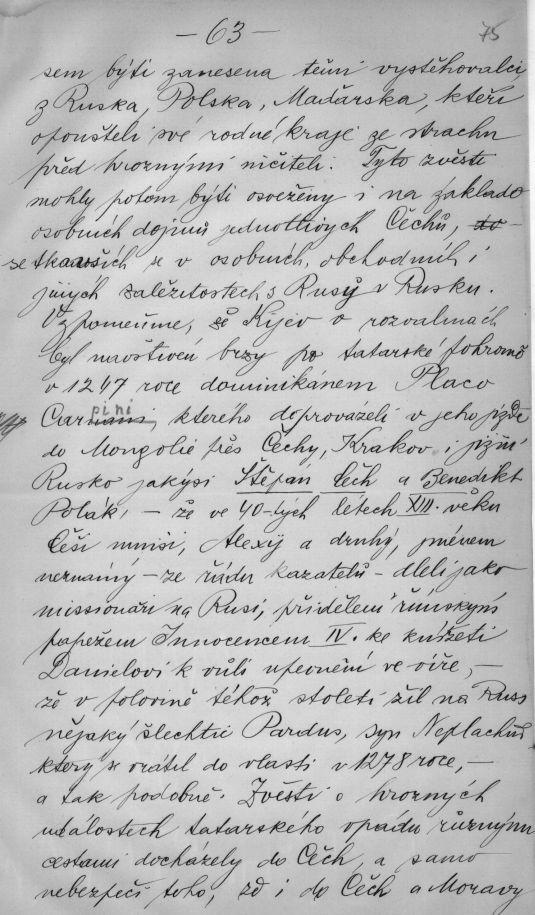 — 63 — 75
sem býti zanesena těmi vystěhovalci
z Ruska, Polska, Maďarska, kteří
opouštěli své rodné kraje ze strachu
před hroznými ničiteli. Tyto zvěsti
mohly potom býti osveženy i na základě
osobních dojmů jednotlivých Čechů, do
setkavších se v osobních, obchodních i
jiných záležitostech s Rusy v Rusku.
Vzpomeňme, že Kijev v rozvalinách
byl navštíven brzy po tatarské pohromě
v 1247 roce dominikánem Plano
Carpini, kterého doprovázeli v jeho jízdě
do Mongolie přes Čechy, Krakov i jižní
Rusko jakýsi Štěpan Čech a Benedikt
Polák, — že ve 40-tých létech XIII. věku
Češi mniši, Alexij a druhý, jménem
neznámý — ze řádu kazatelů — dleli jako
missionáři na Rusi, přiděleni římským
papežem Innocencem IV. ke knížeti
Danielovi k vůli upevnění ve víře, —
že v polovině téhož století žil na Rusi
nějaký šlechtic Pardus, syn Neplachův
který se vrátil do vlasti v 1278 roce, —
a tak podobně. Zvěsti o hrozných
událostech tatarského vpádu různými
cestami docházely do Čech, a samo
nebezpečí toho, že i do Čech a Moravy